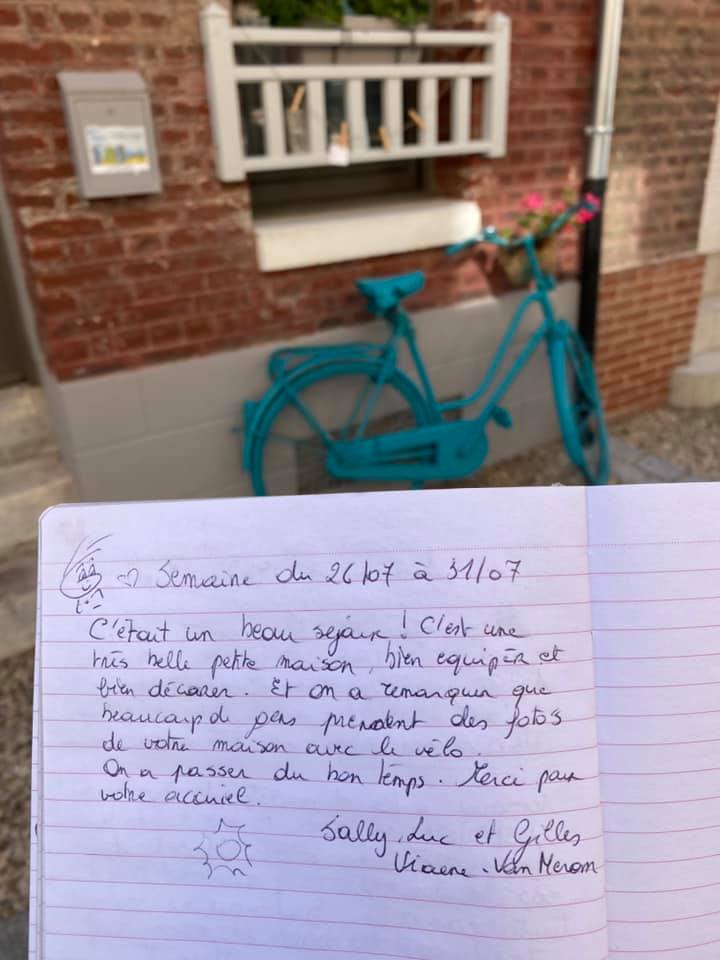 ♡ Semaine du 26/07 à 31/07
C'était un beau sejour ! C'est une
très belle petite maison, bien equipér et
bien décorer. Et on a remarquer que
beaucoup de gens prendent des foto's
de votre maison avec le vélo.
On a passer du bon temps. Merci pour
votre accuiel.
Sally, Luc et Gilles
Viaene - Van Merom